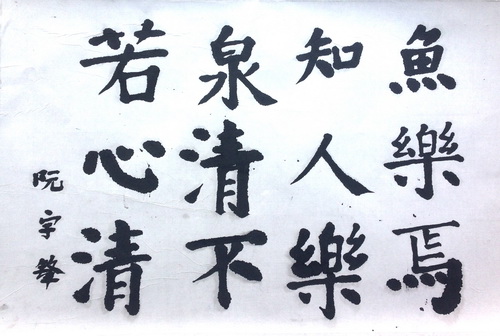 魚樂焉
知人樂
泉清不
若心清
阮宇肇